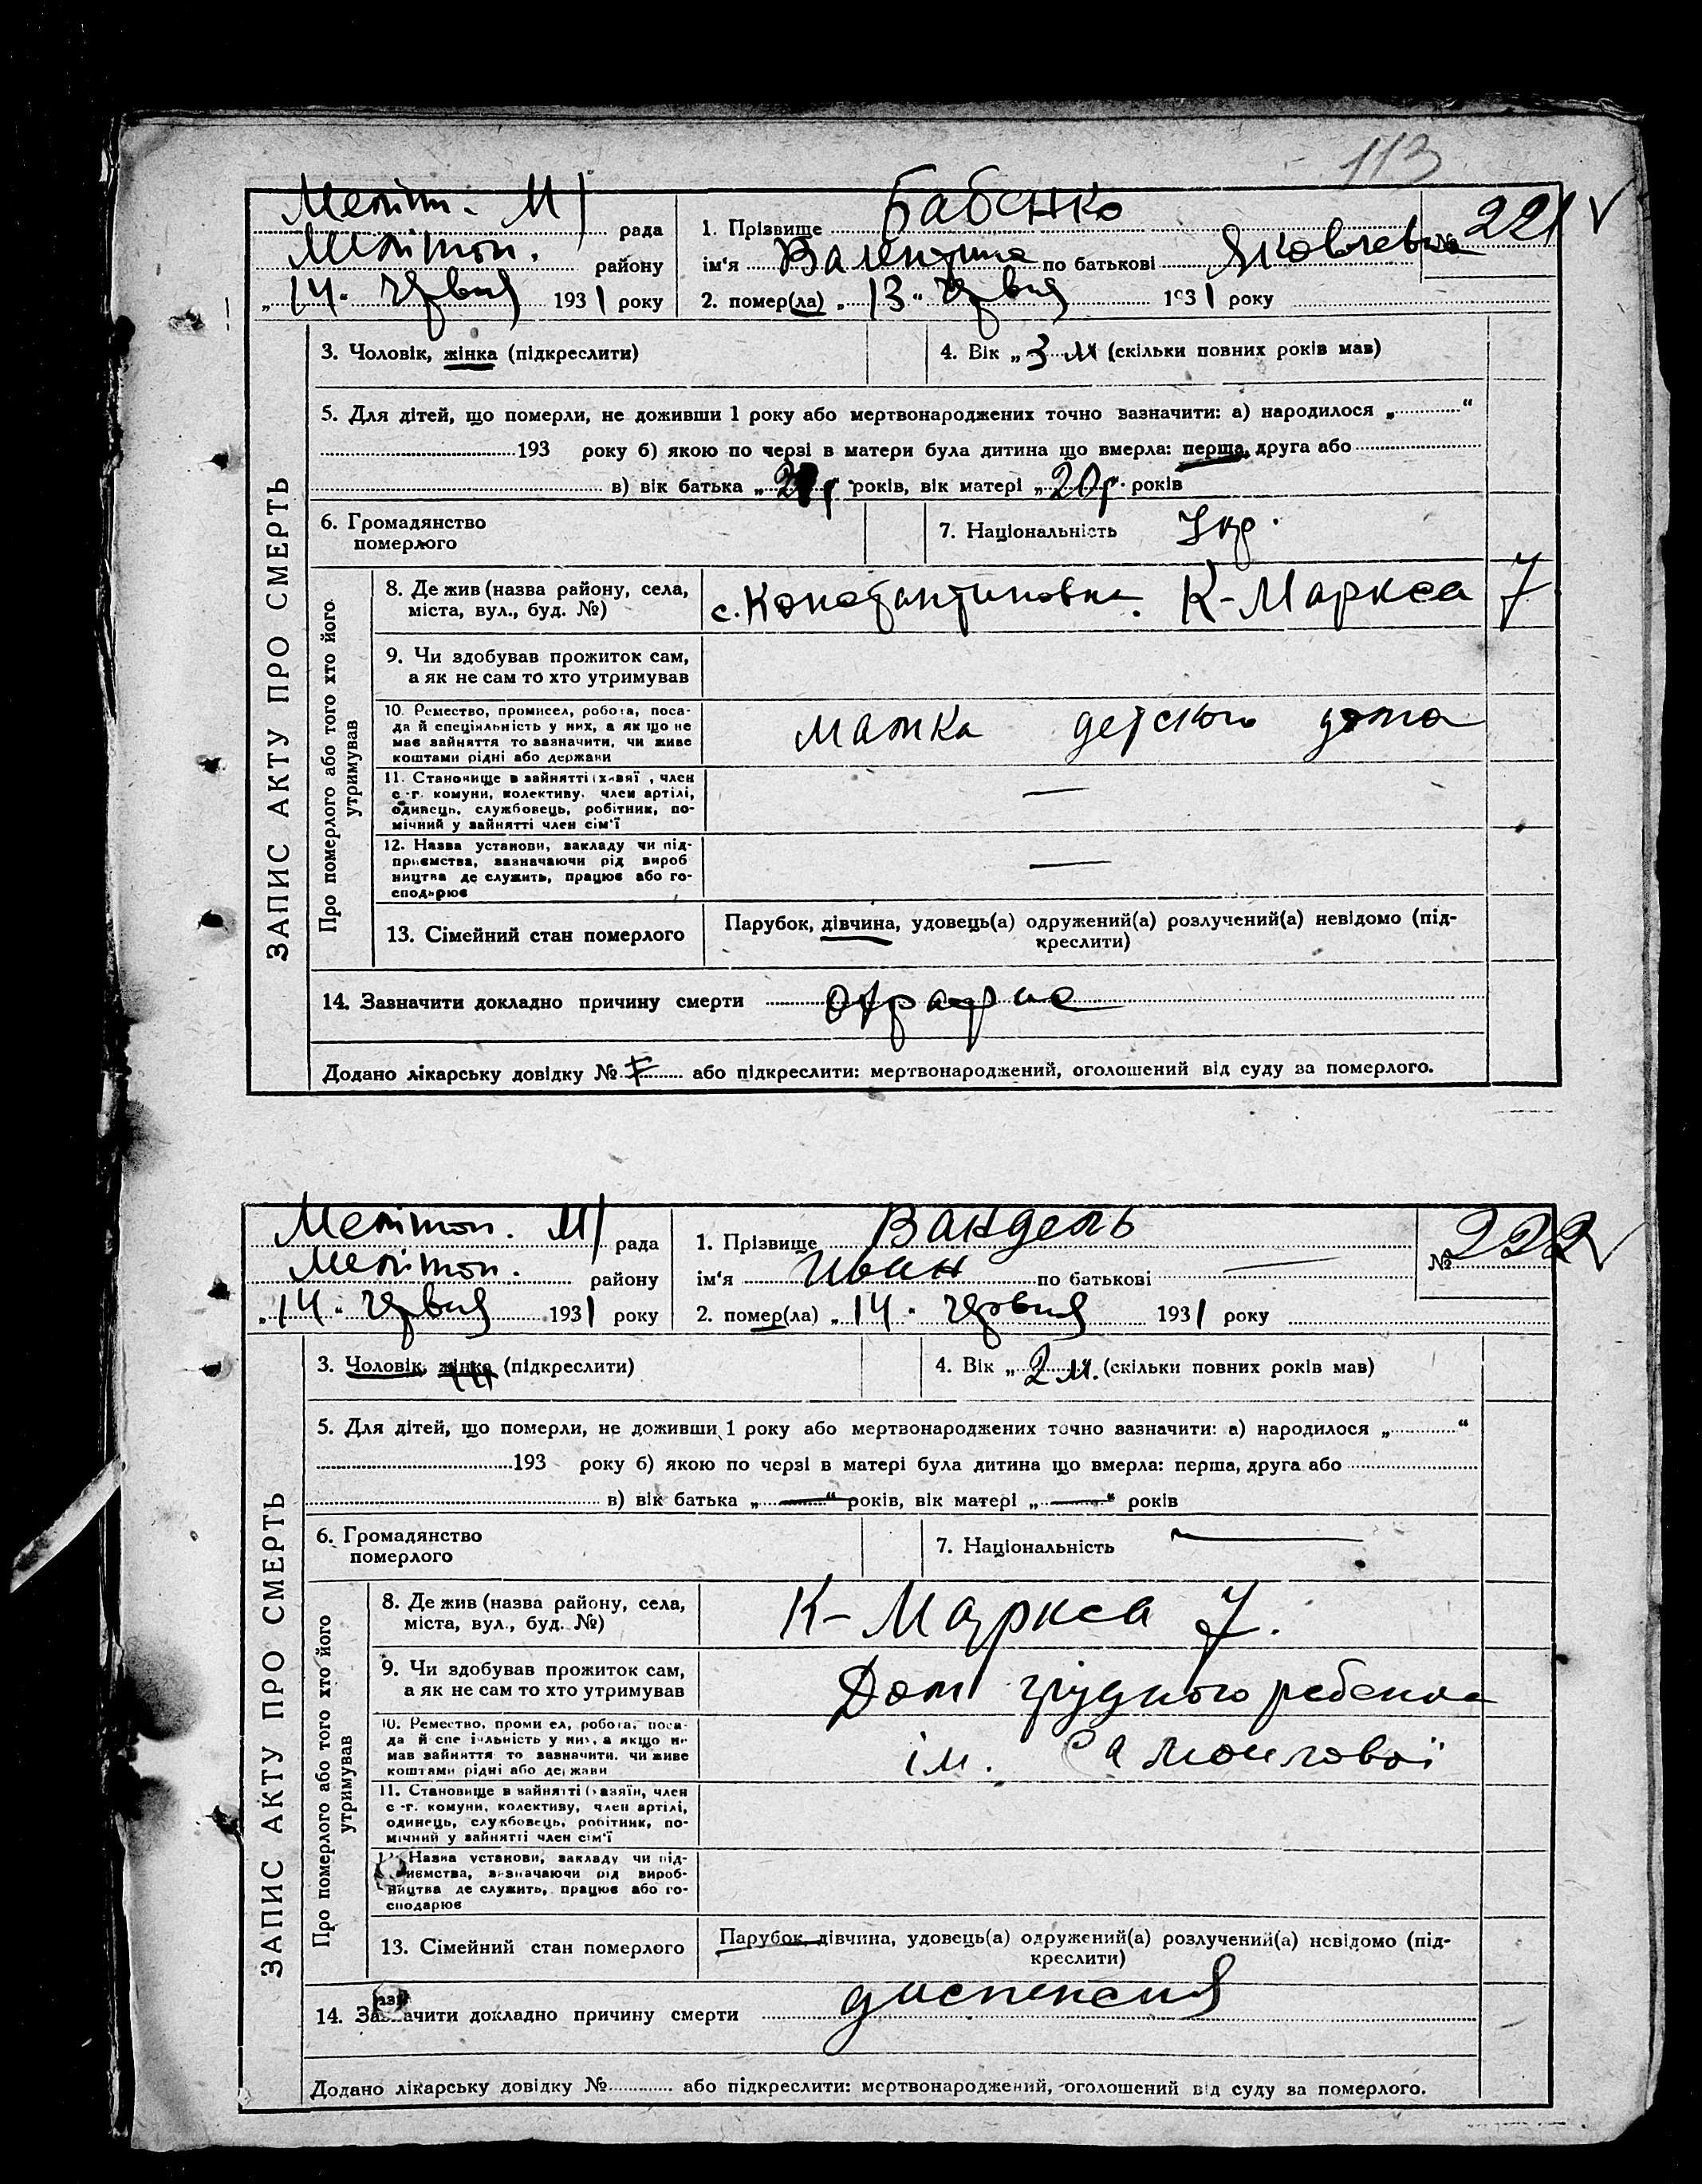 113
Меліт. М/ рада
Мелітоп. району
„14“ червня 1931 року
1. Прізвище Бабенко
ім'я Валентина по батькові Яковлевна
№ 221 V
2. помер(ла) „13“ червня 1931 року
ЗАПИС АКТУ ПРО СМЕРТЬ
3. Чоловік, жінка (підкреслити)
4. Вік „3 м (скільки повних років мав)
5. Для дітей, що померли, не доживши 1 року або мертвонароджених точно зазначити: а) народилося „ “
193 року б) якою по черзі в матери була дитина що вмерла: перша, друга або
в) вік батька „ “ років, вік матері „20 р. років
6. Громадянство
померлого
7. Національність Укр.
Про померлого або того хто його
утримував
8. Де жив (назва району, села,
міста, вул., буд. №)
с. Константиновка. К-Маркса 7
9. Чи здобував прожиток сам,
а як не сам то хто утримував
10. Ремество, промисел, робота, поса-
да й спеціяльність у них, а як що не
має зайняття то зазначити, чи живе
коштами рідні або держави
матка детского дома
11. Становище в зайнятті (хазяї , член
с.-г. комуни, колективу, член артілі,
одинець, службовець, робітник, по-
мічний у зайнятті член сім'ї
—
12. Назва установи, закладу чи під-
приємства, зазначаючи рід вироб
ництва де служить, працює або го-
сподарює
—
13. Сімейний стан померлого
Парубок, дівчина, удовець(а) одружений(а) розлучений(а) невідомо (під-
креслити)
14. Зазначити докладно причину смерти
Додано лікарську довідку № або підкреслити: мертвонароджений, оголошений від суду за померлого.
Мелітоп. М/ рада
Мелітоп. району
„14“ червня 1931 року
1. Прізвище Вандель
ім'я Иван по батькові —
№ 222 V
2. помер(ла) „14“ червня 1931 року
ЗАПИС АКТУ ПРО СМЕРТЬ
3. Чоловік, жінка (підкреслити)
4. Вік „2 м. (скільки повних років мав)
5. Для дітей, що померли, не доживши 1 року або мертвонароджених точно зазначити: а) народилося „ “
193 року б) якою по черзі в матері була дитина що вмерла: перша, друга або
в) вік батька „—“ років, вік матері „—“ років
6. Громадянство
померлого
7. Національність —
Про померлого або того хто його
утримував
8. Де жив (назва району, села,
міста, вул., буд. №)
К-Маркса 7.
9. Чи здобував прожиток сам,
а як не сам то хто утримував
Дом грудного ребенка
10. Ремество, проми ел, робота, поса-
да й спе іяльність у них, а якщо не
мав зайняття то зазначити, чи живе
коштами рідні або держави
ім. Самойлової
11. Становище в зайнятті (хазяїн, член
с.-г. комуни, колективу, член артілі,
одинець, службовець, робітник, по-
мічний у зайнятті член сім'ї
Назва установи, закладу чи під-
иємства, зазначаючи рід вироб-
ництва де служить, працює або го-
сподарює
13. Сімейний стан померлого
Парубок, дівчина, удовець(а) одружений(а) розлучений(а) невідомо (під-
креслити)
14. Зазначити докладно причину смерти диспепсия
Додано лікарську довідку № або підкреслити: мертвонароджений, оголошений від суду за померлого.